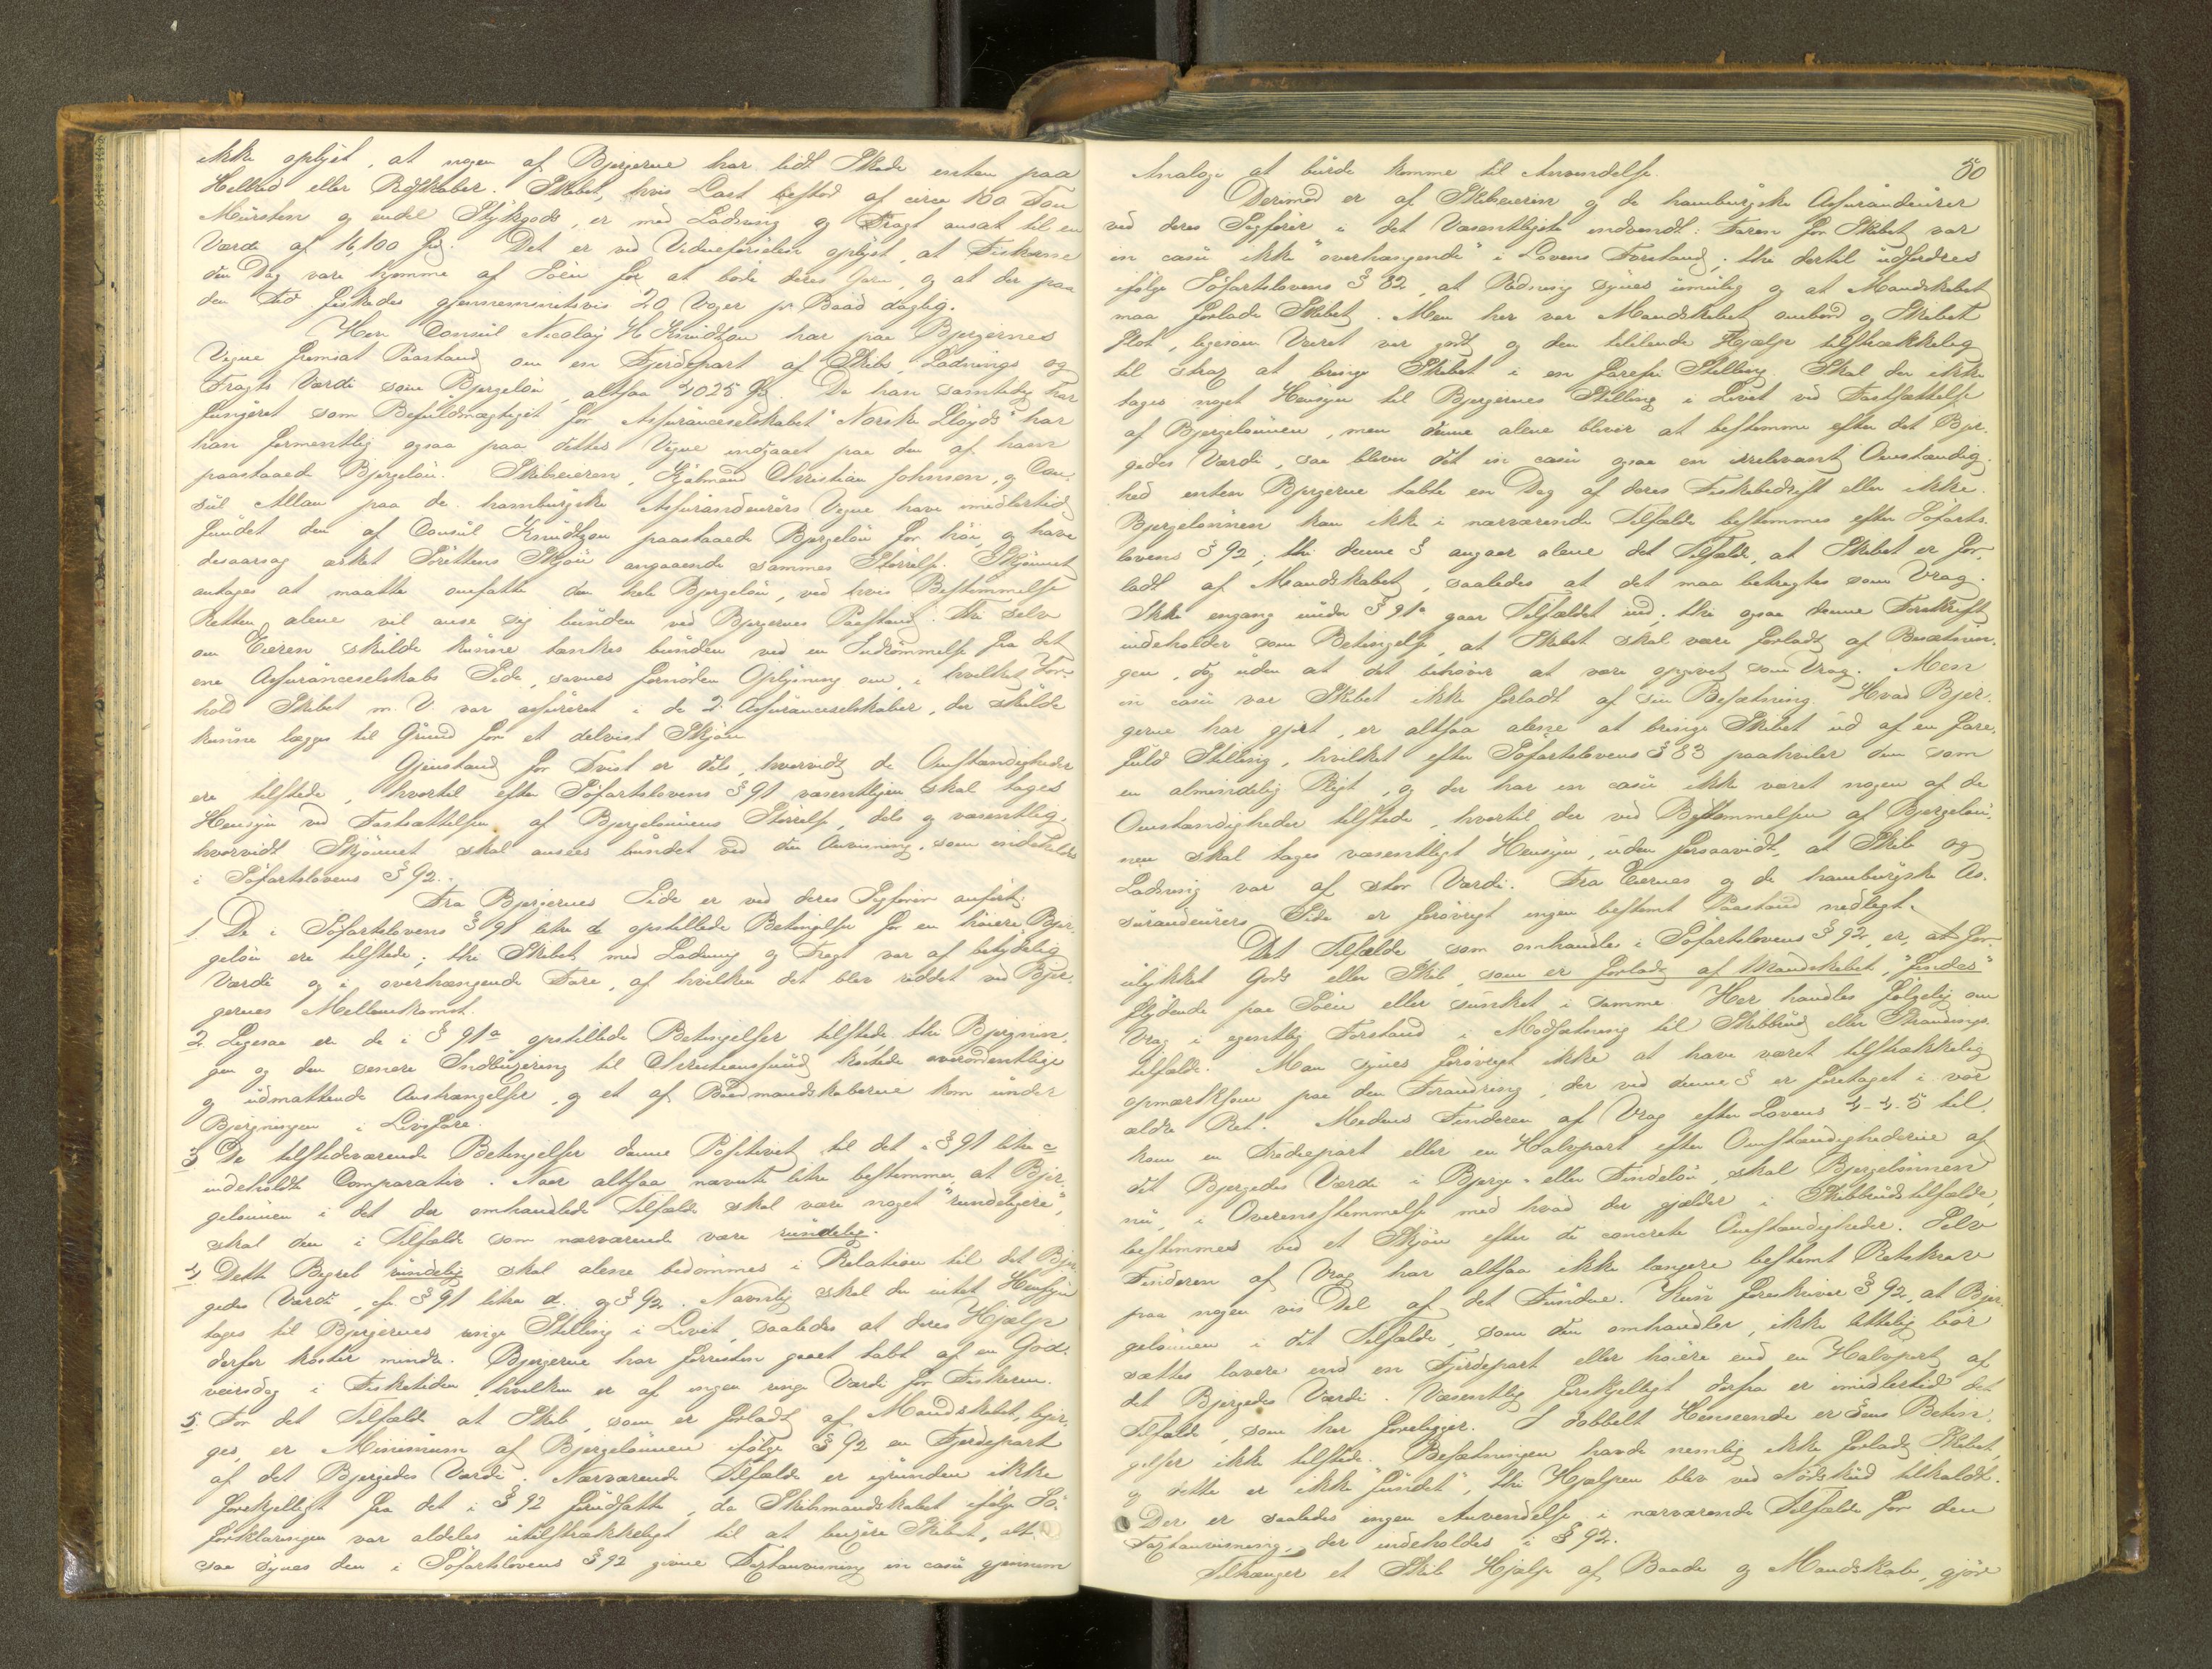 ikke oplyst, at nogen af Bjergerne har lidt Skade enten paa
Helbred eller Redskaber. Skibet, hvis Last bestod af circa 180 Ton
Mürsten og endel Stykgods, er med Ladning og Fragt ansat til en
Værdi af 16,100 Kr. Det er ved Vidneførselen oplyst, at Fiskerne
den Dag vare komne af Søen for at bøde deres Garn, og at der paa
den Tid fiskedes gjennemsnitsvis 20 Voger pr Baad daglig.
Herr Consül Nicolay H. Knudtzon har paa Bjergernes
Vegne fremsat Paastand om en Fjerdepart af Skibs, Ladnings og
Fragts Værdi som Bjergeløn, altsaa 4025 Kr. Da han samtidig har
fungeret som Befuldmægtiget for Assuranceselskabet "Norske Lloyds" har
han formentlig ogsaa paa dettes Vegne indgaaet paa den af ham
paastaaede Bjergeløn. Skibeieren, Hjalmand Christian Johnsen, og Con-
sül Allan paa de hamburgske Assurandeurers Vegne have imidlertid
fundet den af Consul Knudtzon paastaaede Bjergeløn for høi, og have
desaarsag æsket Sørettens Skjøn angaaende sammes Størrelse. Skjønnet
antages at maatte omfatte den hele Bjergeløn, ved hvis Bestemmelse
Retten alene vil anse sig bunden ved Bjergernes Paastand. Thi selv
om Eieren skulde kunne tænkes bunden ved en Indrømmelse fra det
ene Assuranceselskabs Side, savnes fornøden Oplysning om, i hvilket For-
hold Skibet m. V. var assureret i de 2 Assuranceselskaber, der skulde
kunne lægges til Grund for et delvist Skjøn.
Gjenstand for Tvist er dels, hvorvidt de Omstændigheder
ere tilstede, hvortil efter Søfartslovens § 91 væsentligen skal tages
Hensyn ved Fastsættelsen af Bjergelønnens Størrelse, dels og væsentlig,
hvorvidt Skjønnet skal ansees bundet ved den Anvisning, som indeholdes
i Søfartslovens § 92.
Fra Bjergernes Side er ved deres Sagfører anført:
1. De i Søfartslovens § 91 litra d opstillede Betingelser for en høiere Bjer-
geløn ere tilstede; thi Skibet med Ladning og Fragt var af betydelig
Værdi og i overhængende Fare, af hvilken det blev reddet ved Bjer-
gernes Mellemkomst.
2. Ligesaa ere de i § 91 a opstillede Betingelser tilstede thi Bjergnin-
gen og den senere Indbugsering til Christianssund kostede overordentlige
og udmattende Anstrængelser, og et af Baadmandskaberne kom under
Bjergningen i Livsfare.
3 De tilstedeværende Betingelser danne Positivet til det i § 91 litra c
indeholdte Comparativ. Naar altsaa nævnte litra bestemmer, at Bjer-
gelønnen i det der omhandlede Tilfælde skal være noget "rundeligere",
skal den i Tilfælde som nærværende være rundelig.
4 Dette Begreb rundelig skal alene bedømmes i Relation til det Bjer-
gedes Værdi, cfr. § 91 litra d. og § 92. Navnlig skal der intet Hensyn
tages til Bjergernes ringe Stilling i Livet, saaledes at deres Hjælp
derfor koster mindre. Bjergerne har forresten gaaet tabt af en God-
veirsdag i Fisketiden, hvilken er af ingen ringe Værdi for Fiskeren.
5. For det Tilfælde at Skib, som er forladt af Mandskabet, bjer-
ges, er Minimum af Bjergelønnen ifølge § 92 en Fjerdepart
af det Bjergedes Værdi. Nærværende Tilfælde er igrunden ikke
forskjelligt fra det i § 92 forudsatte, da Skibsmandskabet ifølge Sø-
forklaringen var aldeles utilstrækkeligt til at bugsere Skibet, alt-
saa synes den i Søfartslovens § 92 givne Taxtanvisning in casu gjennem
50
Analogi at burde komme til Anvendelse.
Derimod er af Skibseieren og de hamburgske Assurandeurer
ved deres Sagfører i det Væsentligste indvendt: Faren for Skibet var
in casu ikke "overhængende" i Lovens Forstand; thi dertil udfordres
ifølge Søfartslovens § 82, at Redning synes umulig og at Mandskabet
maa forlade Skibet. Men her var Mandskabet ombord og Skibet
flot, ligesom Veiret var godt og den tililende Hjælp tilstrækkelig
til strax at bringe Skibet i en farefri Stilling. Skal der ikke
tages noget Hensyn til Bjergernes Stilling i Livet ved Fastsættelse
af Bjergelønnen, men denne alene bliver at bestemme efter det Bjer-
gedes Værdi, saa bliver det in casu ogsaa en irrelevant Omstændig-
hed enten Bjergerne tabte en Dag af deres Fiskebedrift eller ikke.
Bjergelønnen kan ikke i nærværende Tilfælde bestemmes efter Søfarts-
lovens § 92; thi denne § angaar alene det Tilfælde, at Skibet er for-
ladt af Mandskabet, saaledes at det maa betragtes som Vrag.
Ikke engang under § 91 a gaar Tilfældet ind; thi ogsaa denne Forskrift
indeholder som Betingelse, at Skibet skal være forladt af Besætnin-
gen, dog uden at det behøver at være opgivet som Vrag. Men
in casu var Skibet ikke forladt af sin Besætning. Hvad Bjer-
gerne har gjort, er altsaa alene at bringe Skibet ud af en fare-
fuld Stilling, hvilket efter Søfartslovens § 83 paahviler den som
en almindelig Pligt, og der har in casu ikke været nogen af de
Omstændigheder tilstede, hvortil der ved Bestemmelsen af Bjergeløn-
nen skal tages væsentligt Hensyn, uden forsaavidt, at Skib og
Ladning var af stor Værdi. Fra Eiernes og de hamburgske As-
surandeurers Side er forøvrigt ingen bestemt Paastand nedlagt.
Det Tilfælde som omhandles i Søfartslovens § 92, er, at for-
ulykket Gods eller Skib, som er forladt af Mandskabet, "findes"
flydende paa Søen eller sunket i samme. Her handles følgelig om
Vrag i egentlig Forstand i Modsætning til Skibbrud eller Strandings-
tilfælde. Man synes forøvrigt ikke at have været tilstrækkelig
opmærksom paa den Forandring, der ved denne § er foretaget i vor
ældre Ret. Medens Finderen af Vrag efter Lovens 4-4-5 til-
kom en Trediepart eller en Halvpart efter Omstændighederne af
det Bjergedes Værdi i Bjerge- eller Findeløn, skal Bjergelønnen
nu, i Overensstemmelse med hvad der gjælder i Skibbrudstilfælde,
bestemmes ved et Skjøn efter de concrete Omstændigheder. Selv
Finderen af Vrag har altsaa ikke længere bestemt Retskrav
paa nogen vis Del af det Fundne. Kun foreskriver § 92, at Bjer-
gelønnen i det Tilfælde, som den omhandler, ikke lettelig bør
sættes lavere end en Fjerdepart eller høiere end en Halvpart af
det Bjergedes Værdi. Væsentlig forskjelligt derfra er imidlertid det
Tilfælde, som her foreligger. I dobbelt Henseende er §ens Betin-
gelser ikke tilstede. Besætningen havde nemlig ikke forladt Skibet,
og dette er ikke "fundet", thi Hjælpen blev ved Nødskud tilkaldt.
Der er saaledes ingen Anvendelse i nærværende Tilfælde for den
Taxtanvisning, der indeholdes i § 92.
Tiltrænger et Skib Hjælp af Baade og Mandskab, gjør